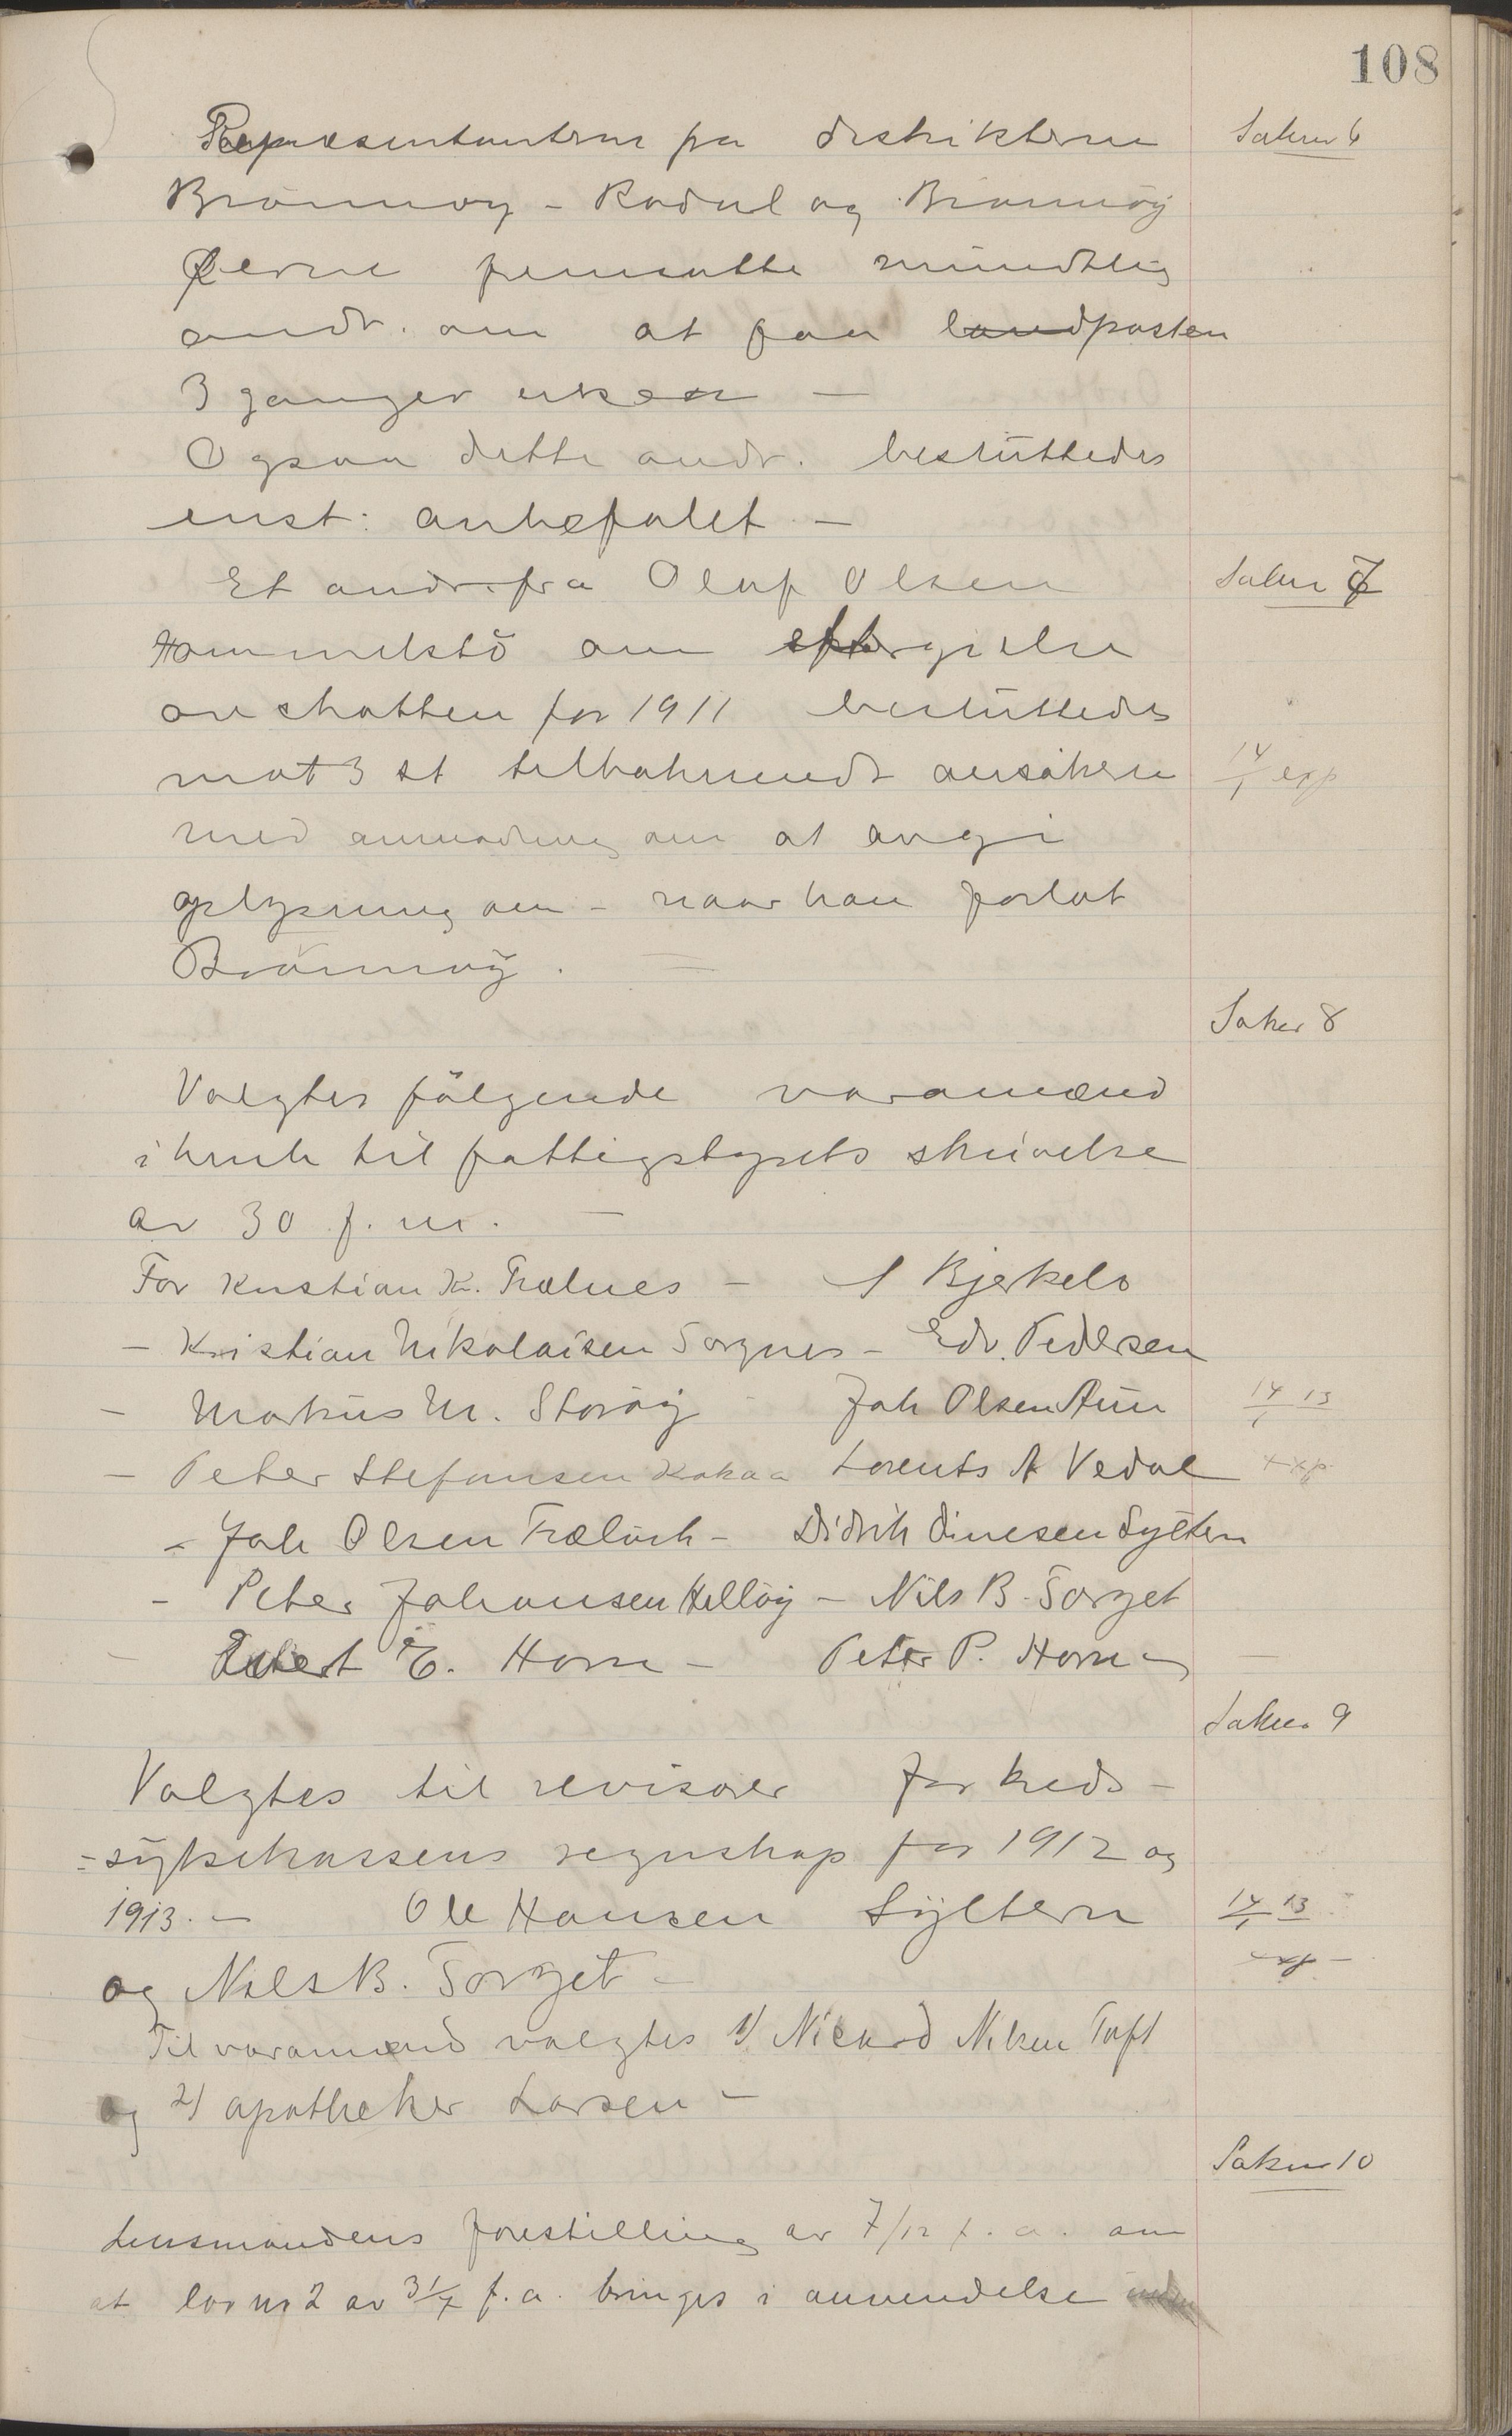 108
Repræsentanterne fra distrikterne
Saken 6
Brönnöy - Rodal og Brönnöy
Öerne fremsatte mundtlig
andr. om at faa landposten
3 ganger uken -
Ogsaa dette andr. besluttedes
enst: anbefalet -
Et andr. fra Oluf Olsen
Saken 7
Hommelstö om eftergivelse
av skatten for 1911 besluttedes
mot 3 st tilbakesendt ansökeren
14/1 exp
med anmodning om at avgi
oplysning om - naar han forlot
Brönnöy. -
Saken 8
Valgtes fölgende varamænd
i henh til fattigstyrets skrivelse
av 30 f. m. -
For Kristian K. Trælnes - S Bjerkelo
- Kristian Nikolaisen Torgnes - Edv. Pedersen
- Markus M. Storöy Joh Olsen Aun
14/1 13
- Peter Stefansen Kakaa Lorents A Vedal
exp.
- Joh Olsen Trælvik - Didrik Dinesen Syltern
- Peter Johansen Hellöy - Nils B. Torget
- E. Horn - Peter P. Horn -
Saken 9
Valgtes til revisorer for kreds-
=sykekassens regnskap for 1912 og
1913. - Ole Hansen Syltern
14/1 13
og Nils B. Torget -
exp -
Til varamænd valgtes 1/ Nicard Nilsen Toft
og 2/ apotheker Larsen -
Saken 10
Lensmandens forestilling av 7/12 f. a. om
at lov nr 2 av 31/7 f. a. bringes i anvendelse